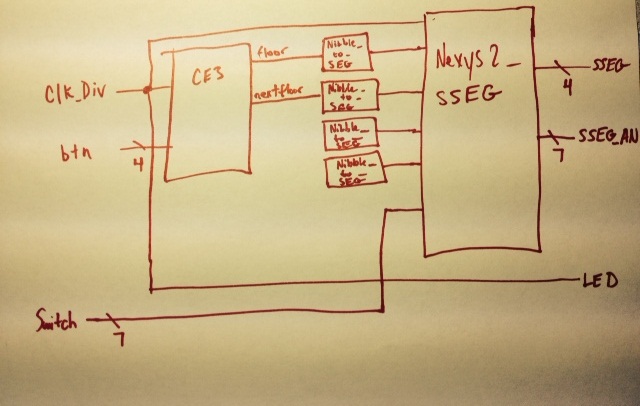 Clk_Div
btn
4
CE3
floor
nextfloor
Nibble_
to_
SEG
Nibble_
to_
SEG
Nibble_
to_
SEG
Nibble_
to_
SEG
Nexys2_
SSEG
4
SSEG
7
SSEG_AN
LED
Switch
7